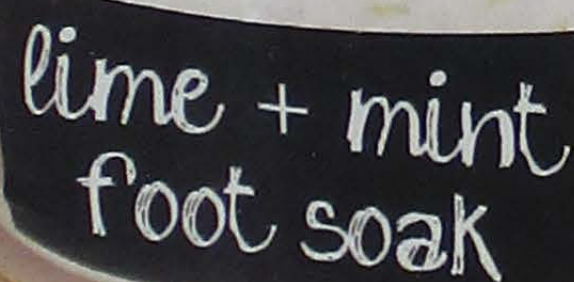 lime + mint
foot soak